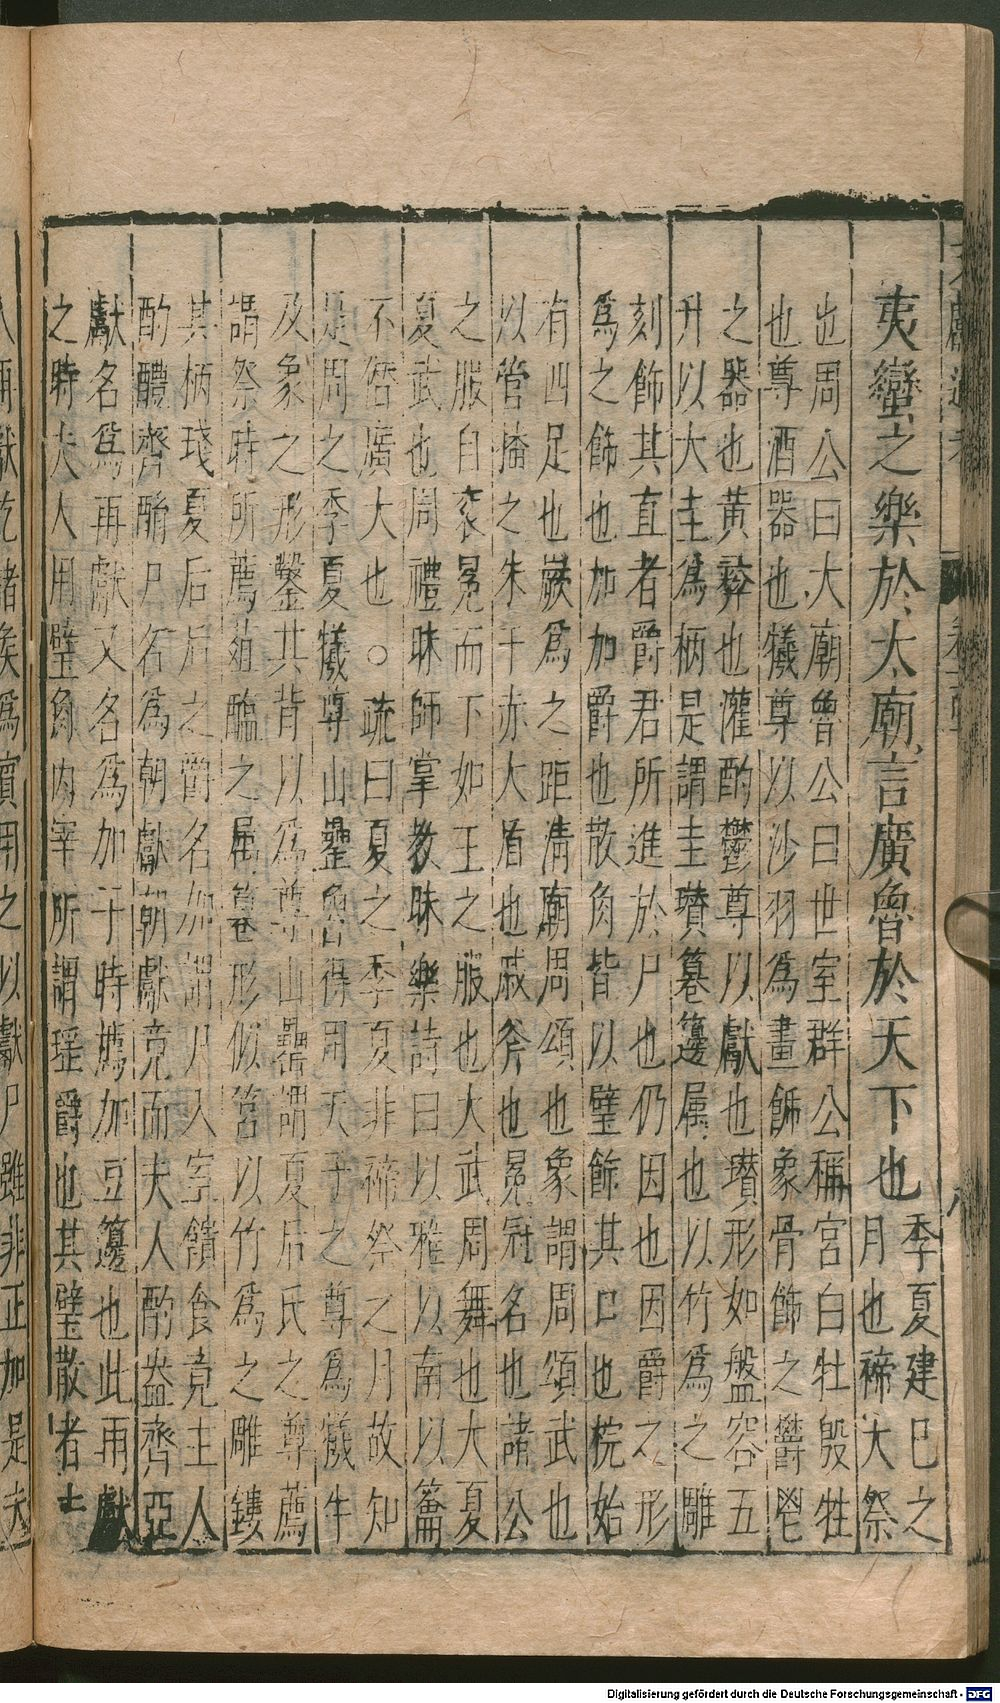 夷蠻之樂於太廟言廣魯於天下也
季夏建巳之
月也禘大祭
也周公曰大廟魯公曰世室群公稱宮白牡殷牲
也尊酒器也犧尊以沙羽爲畫飾象骨飾之鬱鬯
之器也黃彛也灌酌鬱尊以獻也瓚形如盤容五
升以大圭爲柄是謂圭瓚篹籩属也以竹爲之雕
刻飾其直者爵君所進於尸也仍因也因爵之形
爲之飾也加加爵也散角皆以璧餙其口也梡始
有四足也嶡爲之距清廟周頌也象謂周頌武也
以管播之朱干赤大盾也戚斧也冕冠名也諸公
之服自衮冕而下如王之服也大武周舞也大夏
夏武也周禮昧師掌教昧樂詩曰以雅以南以籥
不僭廣大也○疏曰夏之季夏非禘祭之月故知
是周之季夏犧尊山罍魯得用天子之尊爲犧牛
及象之形鑿其背以爲尊山罍謂夏后氏之尊薦
謂祭時所薦葅醢之属篹形似筥以竹爲之雕鏤
其柄琖夏后后之爵名加謂尸入室饋食竟主人
酌醴齊酳尸名爲朝獻朝獻竟而夫人酌盎齊亞
獻名爲再獻又名爲加于時薦加豆籩也此再獻
之時夫人用璧角内宰所謂瑶爵也其璧散者士
人再獻訖諸侯爲賓用之以獻尸雖非正加是夫
Digitalisierung gefördert durch die Deutsche Forschungsgemeinschaft - DFG